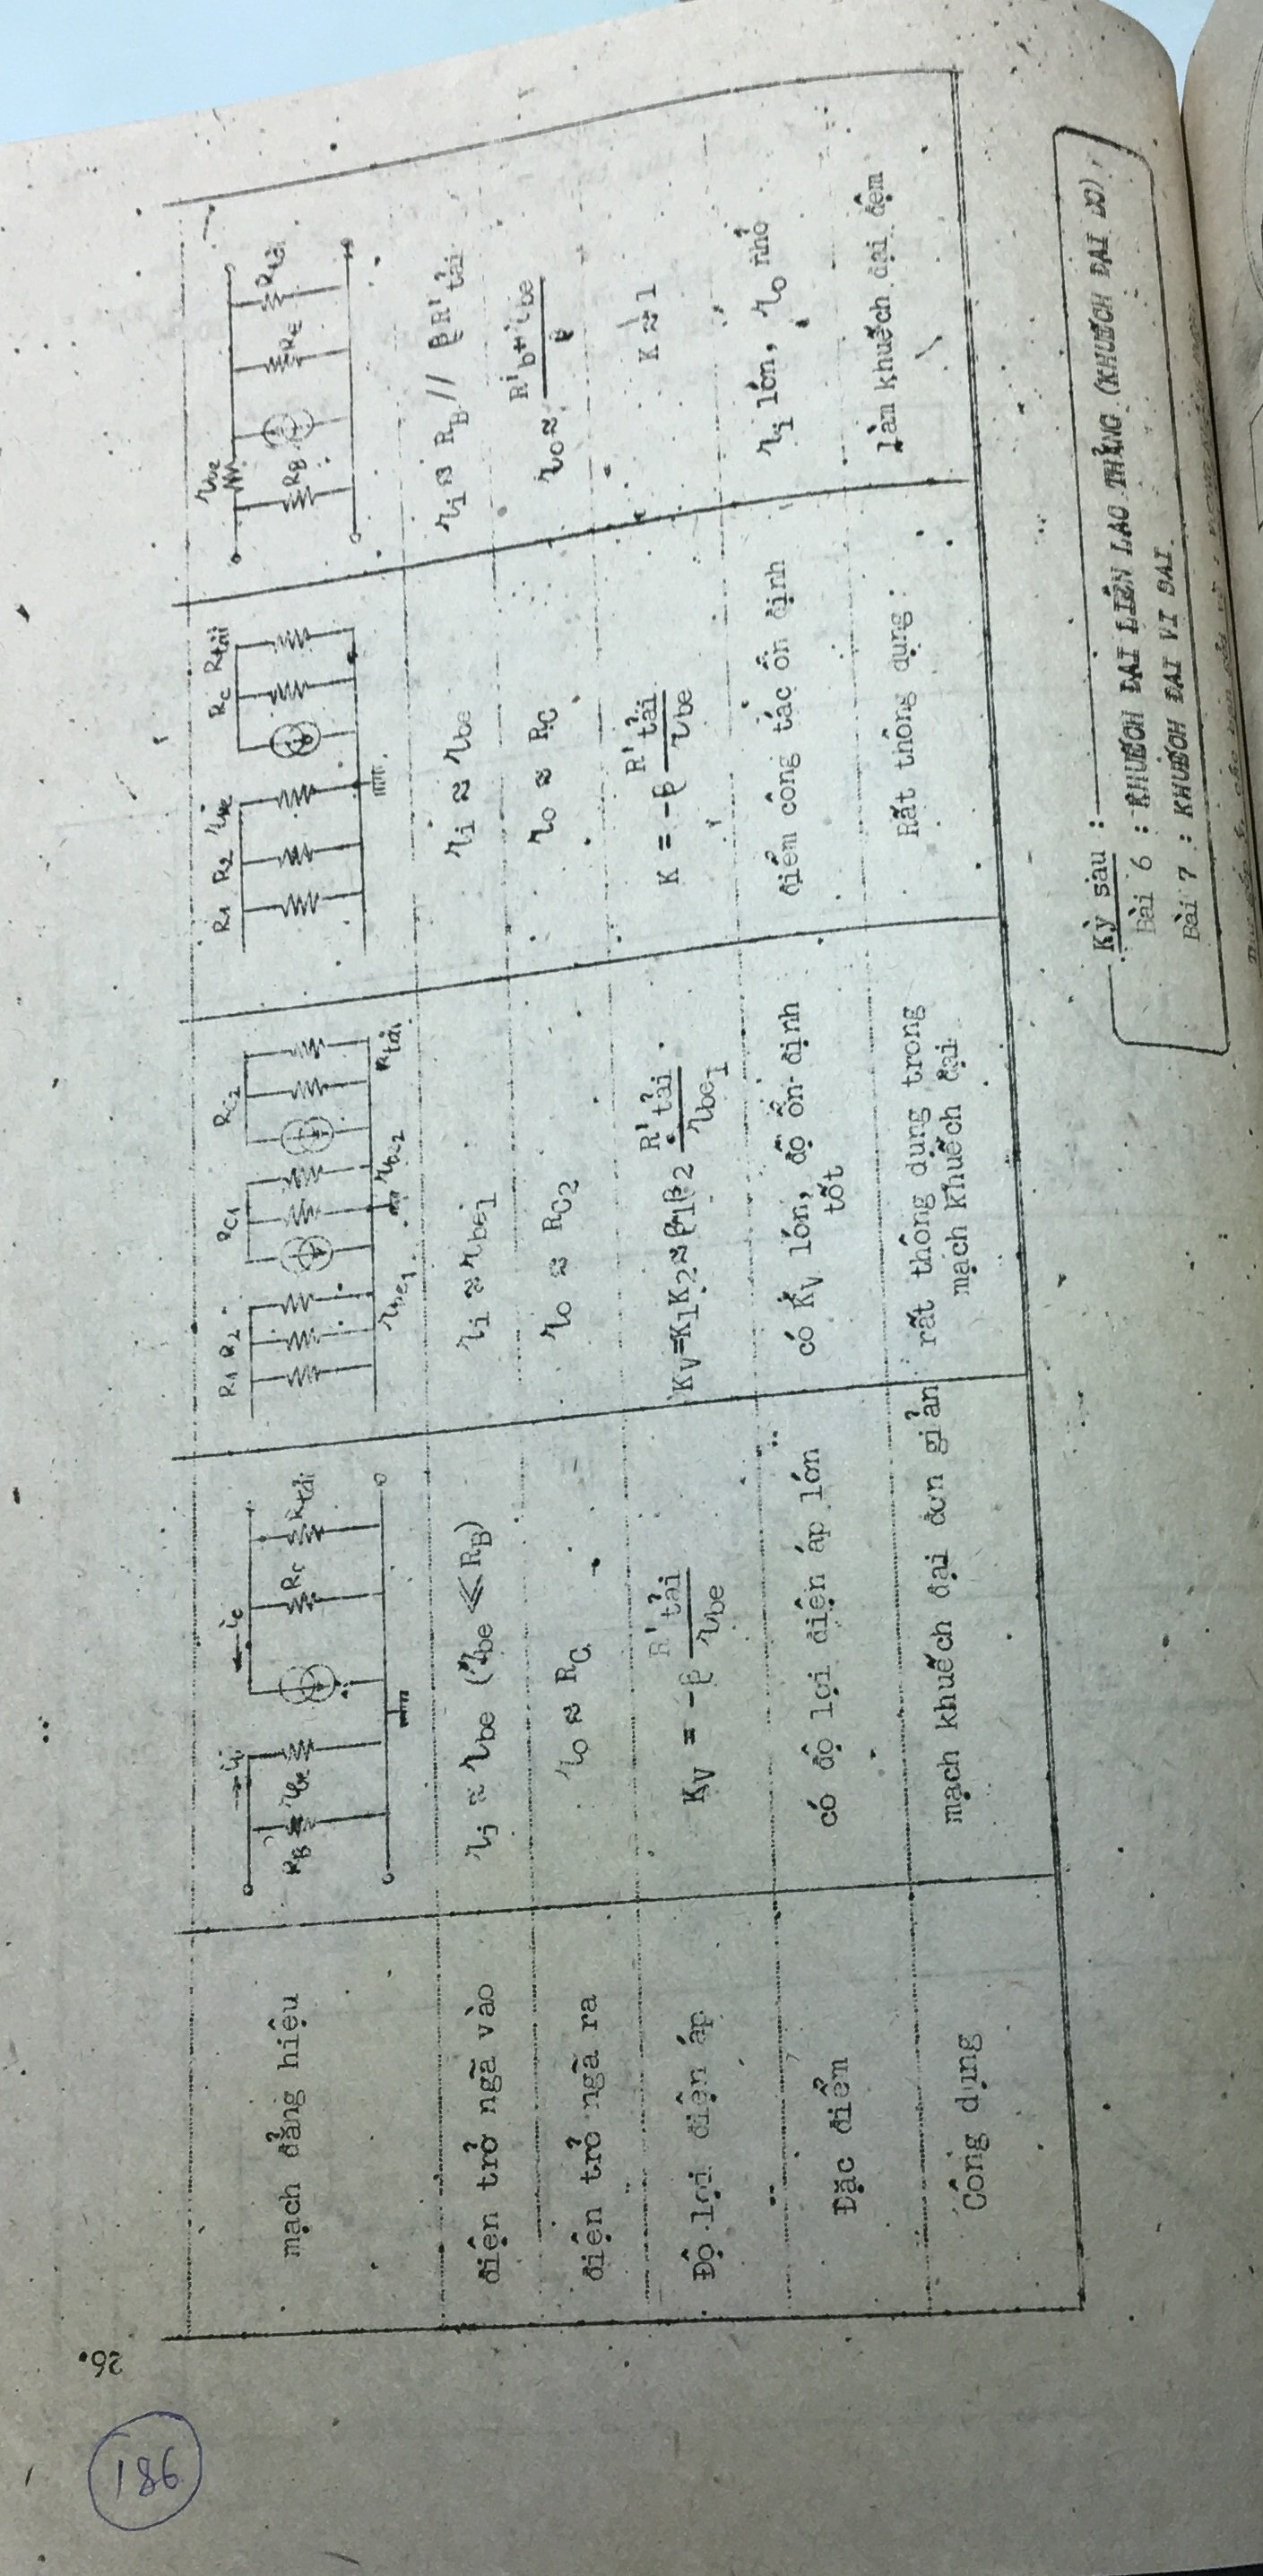 26.
186
mạch đẳng hiệu
RB rbe ii ic RC Rtải
R1 R2 rbe1 RC1 rbe2 RC2 Rtải
R1 R2 rbe RC Rtải
rbe RB RE Rtải
điện trở ngã vào
ri ≈ rbe (rbe ≪ RB)
ri ≈ rbe1
ri ≈ rbe
ri ≈ RB // βR'tải
điện trở ngã ra
ro ≈ RC
ro ≈ RC2
ro ≈ RC
ro ≈ R'b+rbe / β
Độ lợi điện áp
KV = -β R'tải / rbe
KV=K1K2≈β1β2 R'tải / rbe1
K = -β R'tải / rbe
K ≈ 1
Đặc điểm
có độ lợi điện áp lớn
có KV lớn, độ ổn định
tốt
điểm công tác ổn định
ri lớn, ro nhỏ
Công dụng
mạch khuếch đại đơn giản
rất thông dụng trong
mạch khuếch đại
Rất thông dụng
làm khuếch đại đệm
Kỳ sau :
Bài 6 : KHUẾCH ĐẠI LIÊN LẠC THẲNG (KHUẾCH ĐẠI DC)
Bài 7 : KHUẾCH ĐẠI VI SAI